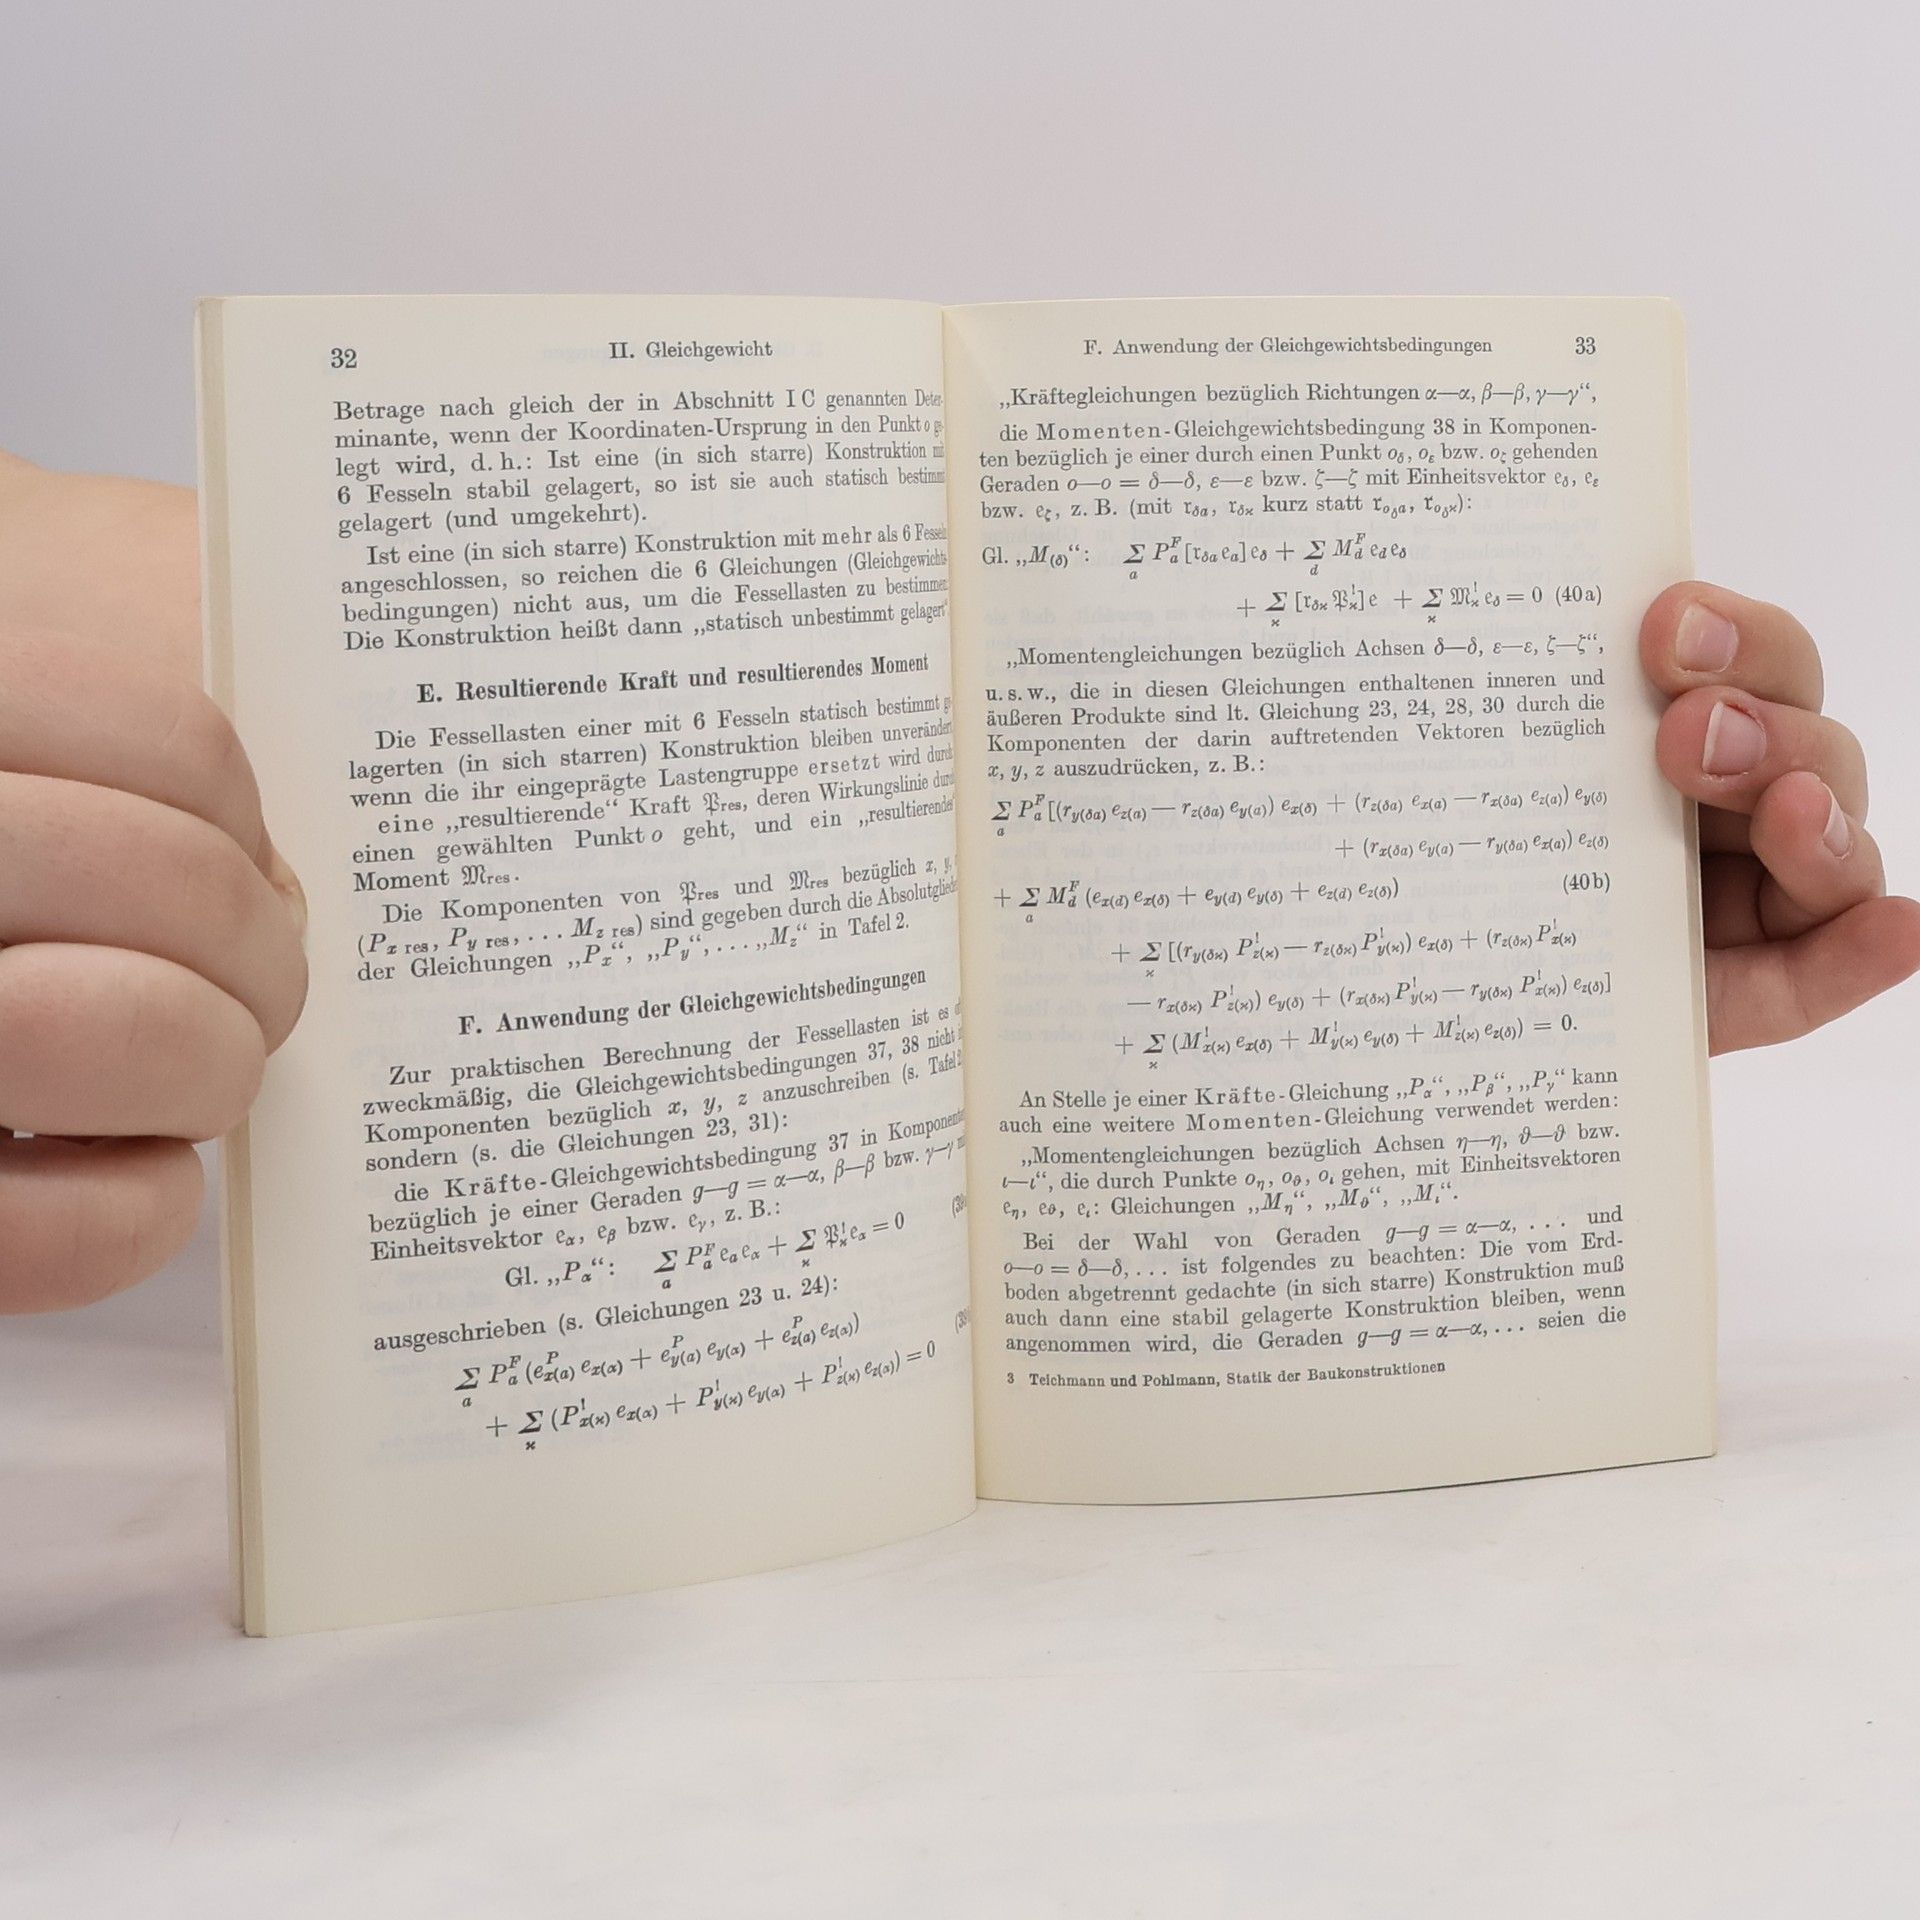 32
II. Gleichgewicht
Betrage nach gleich der in Abschnitt I C genannten Deter-
minante, wenn der Koordinaten-Ursprung in den Punkt o ge-
legt wird, d. h.: Ist eine (in sich starre) Konstruktion mit
6 Fesseln stabil gelagert, so ist sie auch statisch bestimmt
gelagert (und umgekehrt).
Ist eine (in sich starre) Konstruktion mit mehr als 6 Fesseln
angeschlossen, so reichen die 6 Gleichungen (Gleichgewichts-
bedingungen) nicht aus, um die Fessellasten zu bestimmen.
Die Konstruktion heißt dann „statisch unbestimmt gelagert“
E. Resultierende Kraft und resultierendes Moment
Die Fessellasten einer mit 6 Fesseln statisch bestimmt ge-
lagerten (in sich starren) Konstruktion bleiben unverändert,
wenn die ihr eingeprägte Lastengruppe ersetzt wird durch
eine „resultierende“ Kraft 𝔓res, deren Wirkungslinie durch
einen gewählten Punkt o geht, und ein „resultierendes“
Moment 𝔐res.
Die Komponenten von 𝔓res und 𝔐res bezüglich x, y,
(Px res, Py res, . . . Mz res) sind gegeben durch die Absolutglieder
der Gleichungen „Px“, „Py“, . . . „Mz“ in Tafel 2.
F. Anwendung der Gleichgewichtsbedingungen
Zur praktischen Berechnung der Fessellasten ist es
zweckmäßig, die Gleichgewichtsbedingungen 37, 38 nicht
Komponenten bezüglich x, y, z anzuschreiben (s. Tafel
sondern (s. die Gleichungen 23, 31):
die Kräfte-Gleichgewichtsbedingung 37 in Komponenten
bezüglich je einer Geraden g—g = α—α, β—β bzw. γ—γ
Einheitsvektor eα, eβ bzw. eγ, z. B.:
Gl. „Pα“: Σₐ PₐF eₐ eα + Σϰ 𝔓ϰ! eα = 0
ausgeschrieben (s. Gleichungen 23 u. 24):
Σₐ PₐF (ex(a)P ex(α) + ey(a)P ey(α) + ez(a)P ez(α))
+ Σϰ (Px(ϰ)! ex(α) + Py(ϰ)! ey(α) + Pz(ϰ)! ez(α)) = 0
F. Anwendung der Gleichgewichtsbedingungen
33
„Kräftegleichungen bezüglich Richtungen α—α, β—β, γ—γ“,
die Momenten-Gleichgewichtsbedingung 38 in Komponen-
ten bezüglich je einer durch einen Punkt oδ, oε bzw. oζ gehenden
Geraden o—o = δ—δ, ε—ε bzw. ζ—ζ mit Einheitsvektor eδ, eε
bzw. eζ, z. B. (mit rδa, rδϰ kurz statt roδa, roδϰ):
Gl. „M(δ)“: Σₐ PₐF [rδa ea] eδ + Σd MdF ed eδ
+ Σϰ [rδϰ 𝔓ϰ!] e + Σϰ 𝔐ϰ! eδ = 0 (40a)
„Momentengleichungen bezüglich Achsen δ—δ, ε—ε, ζ—ζ“,
u. s. w., die in diesen Gleichungen enthaltenen inneren und
äußeren Produkte sind lt. Gleichung 23, 24, 28, 30 durch die
Komponenten der darin auftretenden Vektoren bezüglich
x, y, z auszudrücken, z. B.:
Σₐ PₐF [(ry(δa) ez(a) — rz(δa) ey(a)) ex(δ) + (rz(δa) ex(a) — rx(δa) ez(a)) ey(δ)
+ (rx(δa) ey(a) — ry(δa) ex(a)) ez(δ)
+ Σₐ MdF (ex(d) ex(δ) + ey(d) ey(δ) + ez(d) ez(δ)) (40b)
+ Σϰ [(ry(δϰ) Pz(ϰ)! — rz(δϰ) Py(ϰ)!) ex(δ) + (rz(δϰ) Px(ϰ)!
— rx(δϰ) Pz(ϰ)!) ey(δ) + (rx(δϰ) Py(ϰ)! — ry(δϰ) Px(ϰ)!) ez(δ)]
+ Σϰ (Mx(ϰ)! ex(δ) + My(ϰ)! ey(δ) + Mz(ϰ)! ez(δ)) = 0.
An Stelle je einer Kräfte-Gleichung „Pα“, „Pβ“, „Pγ“ kann
auch eine weitere Momenten-Gleichung verwendet werden:
„Momentengleichungen bezüglich Achsen η—η, ϑ—ϑ bzw.
ι—ι“, die durch Punkte oη, oϑ, oι gehen, mit Einheitsvektoren
eη, eϑ, eι: Gleichungen „Mη“, „Mϑ“, „Mι“.
Bei der Wahl von Geraden g—g = α—α, . . . und
o—o = δ—δ, . . . ist folgendes zu beachten: Die vom Erd-
boden abgetrennt gedachte (in sich starre) Konstruktion muß
auch dann eine stabil gelagerte Konstruktion bleiben, wenn
angenommen wird, die Geraden g—g = α—α, . . . seien die
3 Teichmann und Pohlmann, Statik der Baukonstruktionen